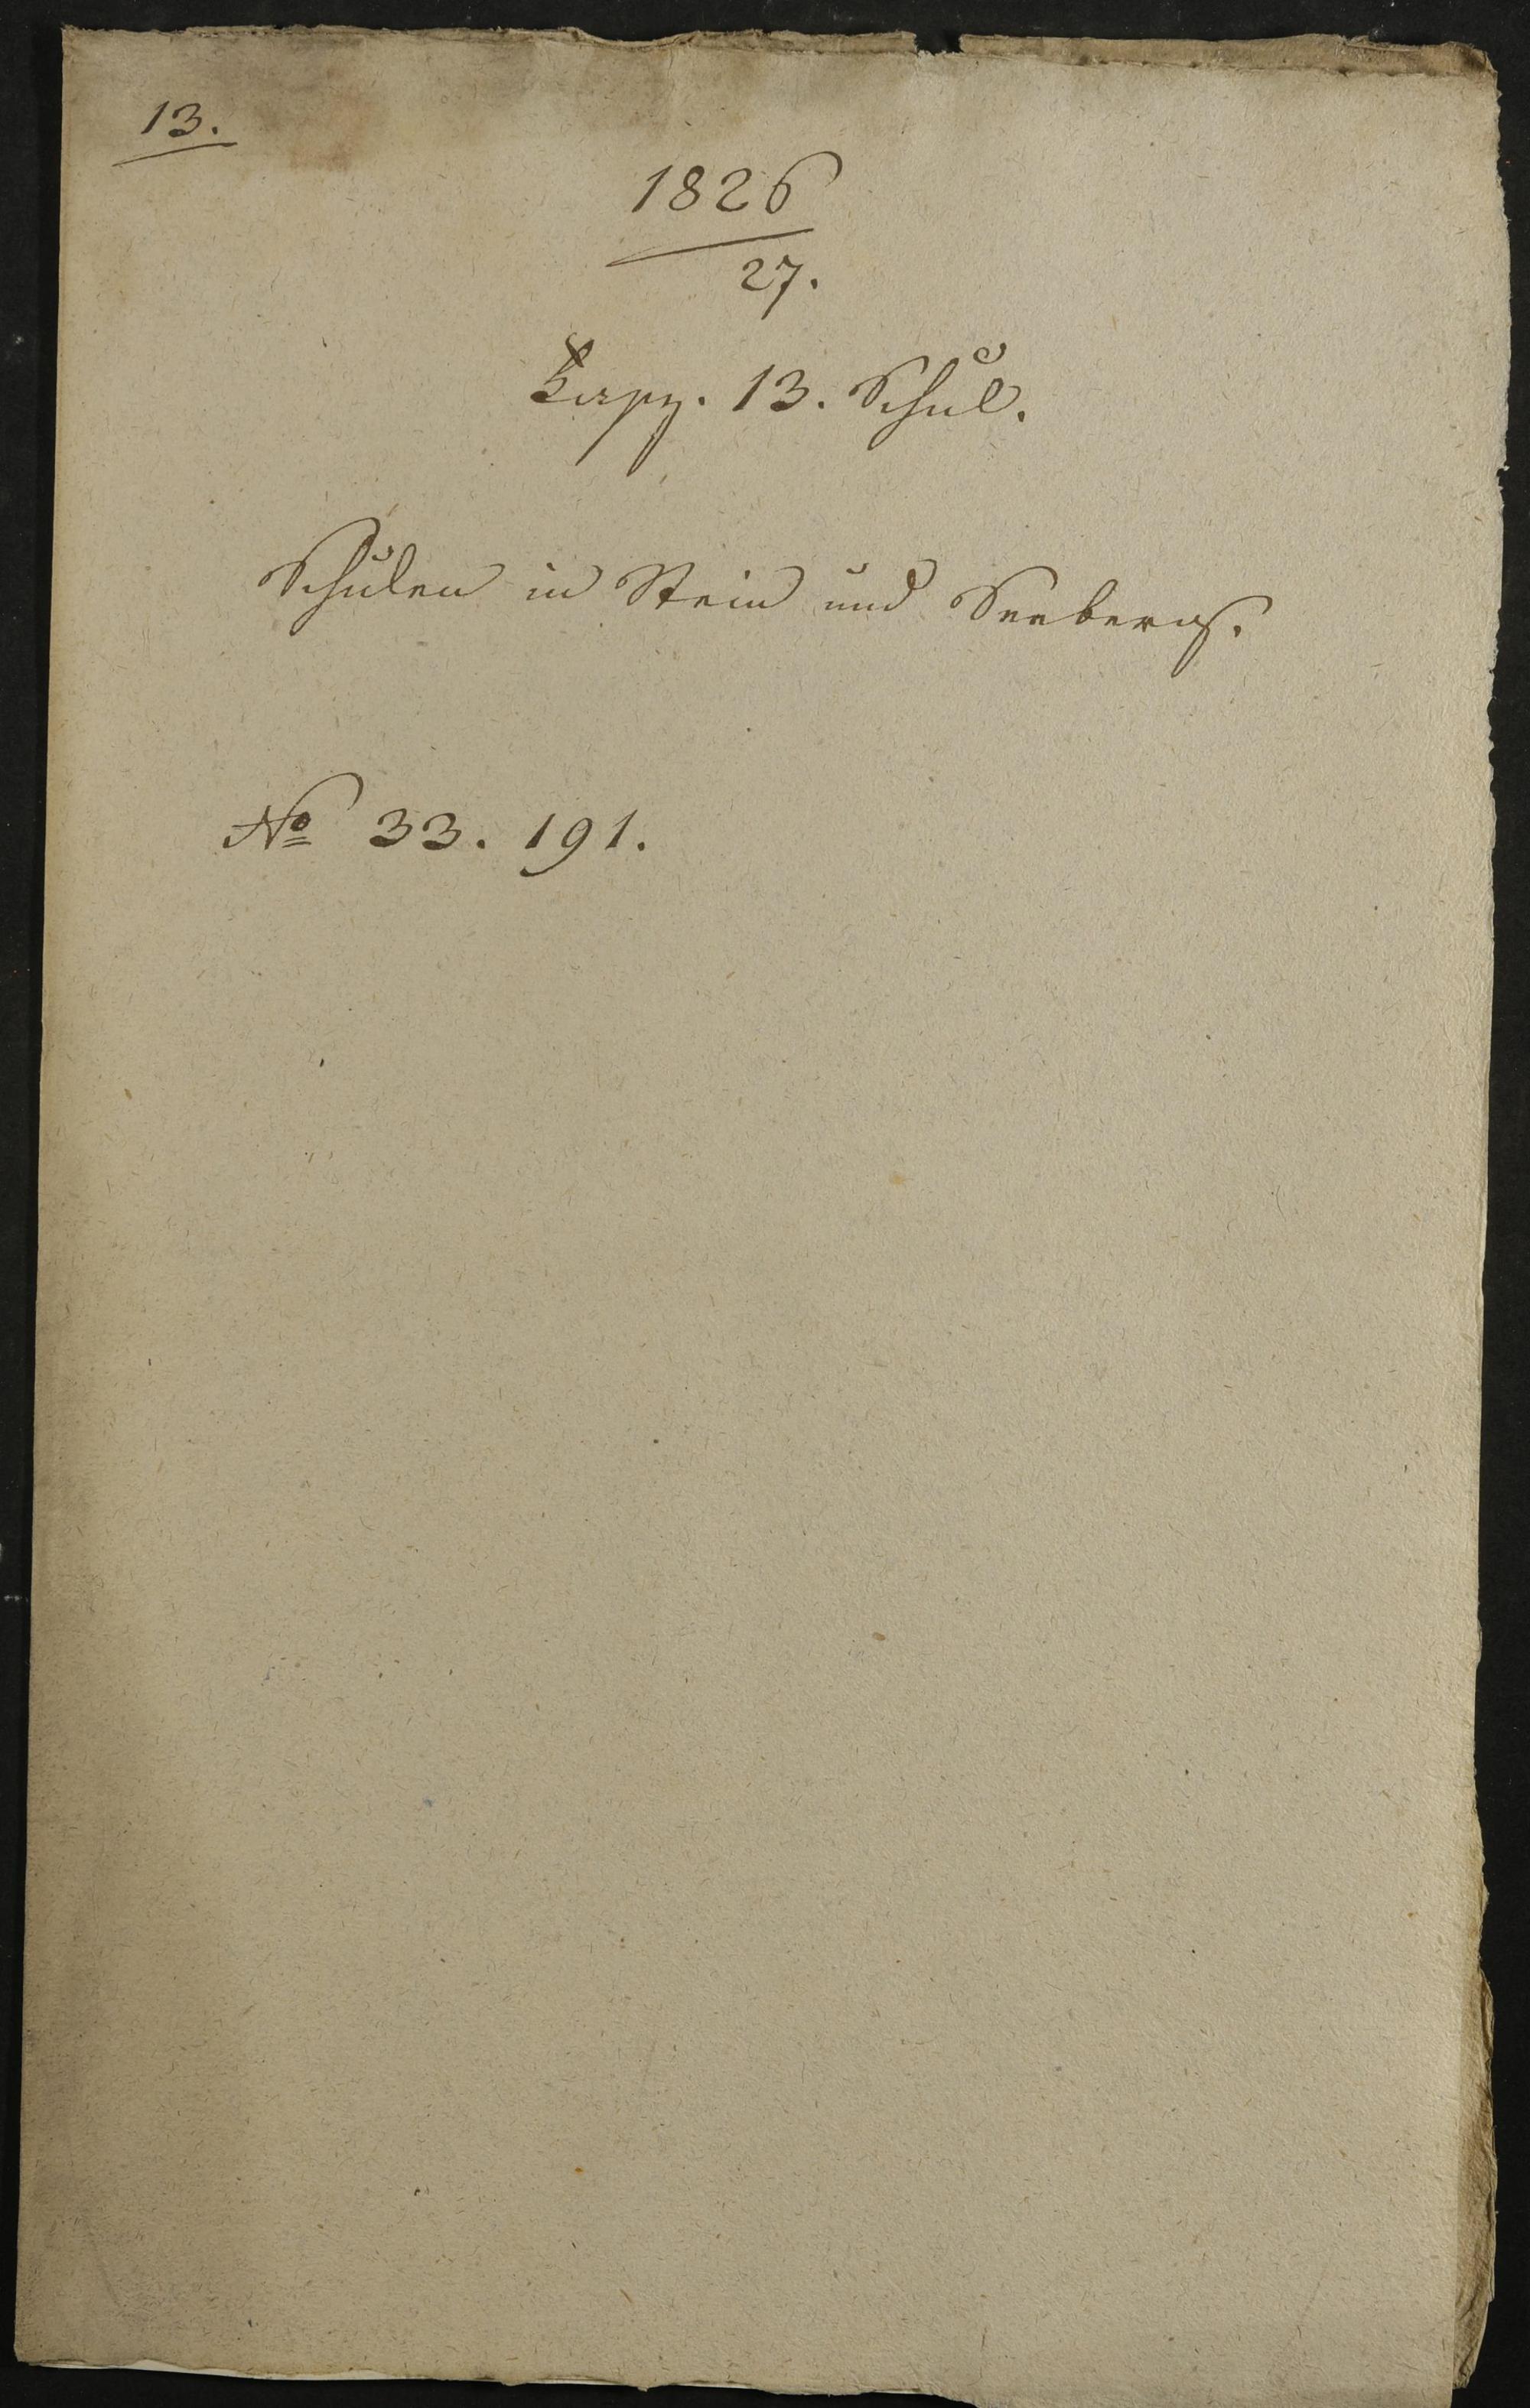 13.
1826
27.
Kapz. 13. Schul.
Schulen in Stein und Seeberg.
No 33. 191.